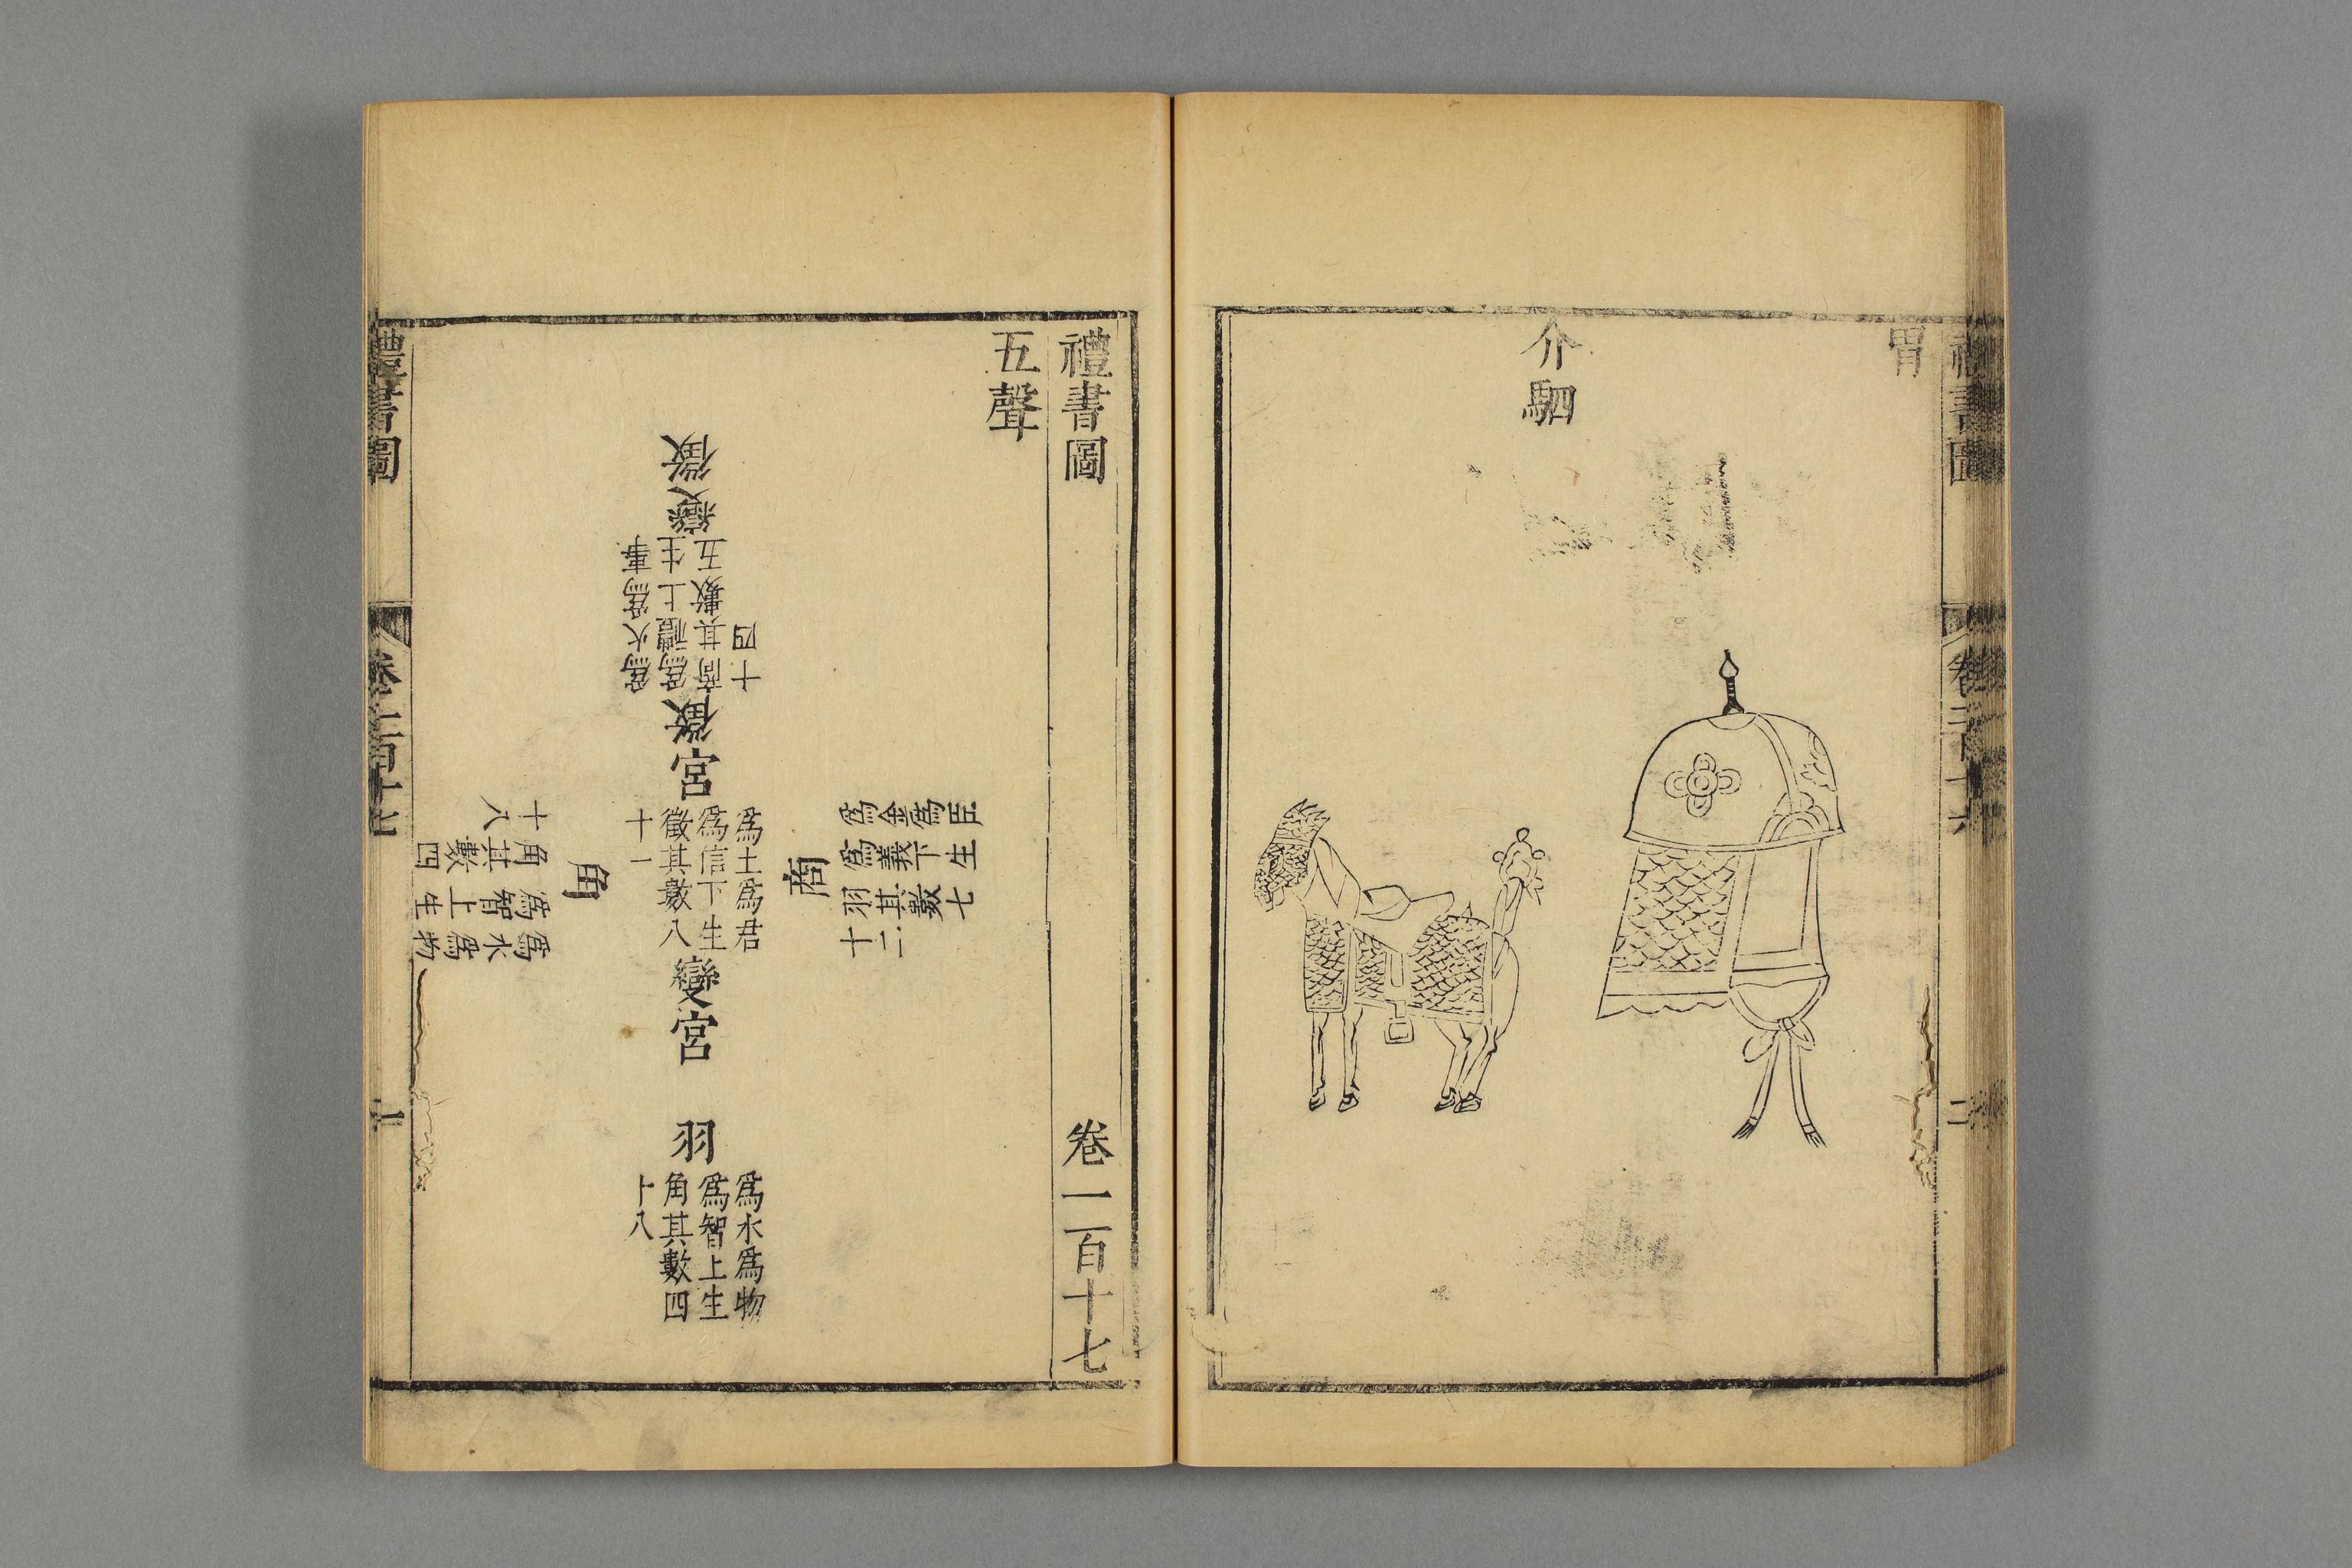 冑
介駟
禮書圖 卷一百十七
五聲
商
爲金爲臣
爲義下生
羽其數七
十二
變徵
徵
爲火爲事
爲禮上生
商其數五
十四
宮
爲土爲君
爲信下生
徵其數八
十一
變宮
羽
爲水爲物
爲智上生
角其數四
十八
角
爲水爲物
爲智上生
角其數四
十八
禮書圖